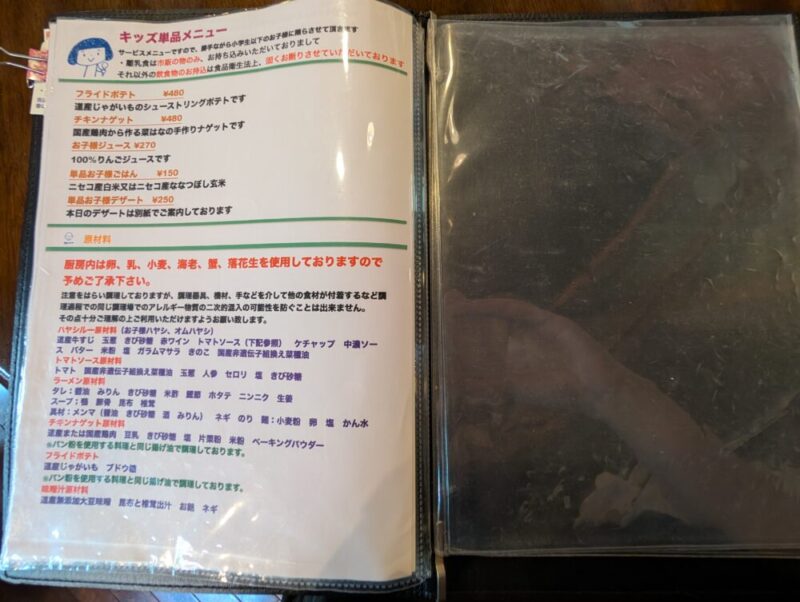 キッズ単品メニュー
サービスメニューですので、勝手ながら小学生以下のお子様に限らさせて頂きます
・離乳食は市販の物のみ、お持ち込みいただいておりまして
それ以外の飲食物のお持込は食品衛生法上、固くお断りさせていただいております
フライドポテト ¥480
道産じゃがいものシューストリングポテトです
チキンナゲット ¥480
国産鶏肉から作る菜はなの手作りナゲットです
お子様ジュース ¥270
100%りんごジュースです
単品お子様ごはん ¥150
ニセコ産白米又はニセコ産ななつぼし玄米
単品お子様デザート ¥250
本日のデザートは別紙でご案内しております
原材料
厨房内は卵、乳、小麦、海老、蟹、落花生を使用しておりますので
予めご了承下さい。
注意をはらい調理しておりますが、調理器具、機材、手などを介して他の食材が付着するなど調
理過程での同じ調理場でのアレルギー物質の二次的混入の可能性を防ぐことは出来ません。
その点十分ご理解の上ご利用いただけますようお願い致します。
ハヤシルー原材料（お子様ハヤシ、オムハヤシ）
道産牛すじ 玉葱 きび砂糖 赤ワイン トマトソース（下記参照） ケチャップ 中濃ソー
ス バター 米粉 塩 ガラムマサラ きのこ 国産非遺伝子組換え菜種油
トマトソース原材料
トマト 国産非遺伝子組換え菜種油 玉葱 人参 セロリ 塩 きび砂糖
ラーメン原材料
タレ：醤油 みりん きび砂糖 米酢 鰹節 ホタテ ニンニク 生姜
スープ：豚骨 昆布 椎茸
具材：メンマ（醤油 きび砂糖 酒 みりん） ネギ のり 麺：小麦粉 卵 塩 かん水
チキンナゲット原材料
道産または国産鶏肉 豆乳 きび砂糖 塩 片栗粉 米粉 ベーキングパウダー
※パン粉を使用する料理と同じ揚げ油で調理しております。
フライドポテト
道産じゃがいも ブドウ糖
※パン粉を使用する料理と同じ揚げ油で調理しております。
味噌汁原材料
道産無添加大豆味噌 昆布と椎茸出汁 お麩 ネギ